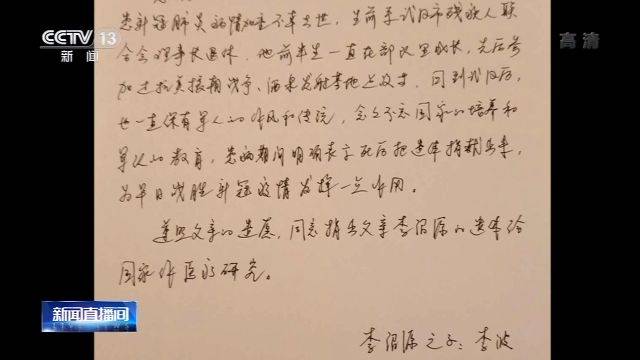 CCTV 13
新闻
高清
患新冠肺炎病情加重不幸去世,生前系武汉市残疾人联
合会理事长退休。他前半生一直在部队里成长,先后参
加过抗美援朝战争、酒泉发射基地
回到武汉后,
也一直保有军人的作风和传统,念念不忘国家的培养和
军队的教育,患病期间明确表示死后把遗体捐献出来,
为早日战胜新冠疫情发挥一点作用。
遵照父亲的遗愿,同意捐出父亲李绍源的遗体给
国家作医疗研究。
李绍源之子:李波
新闻直播间